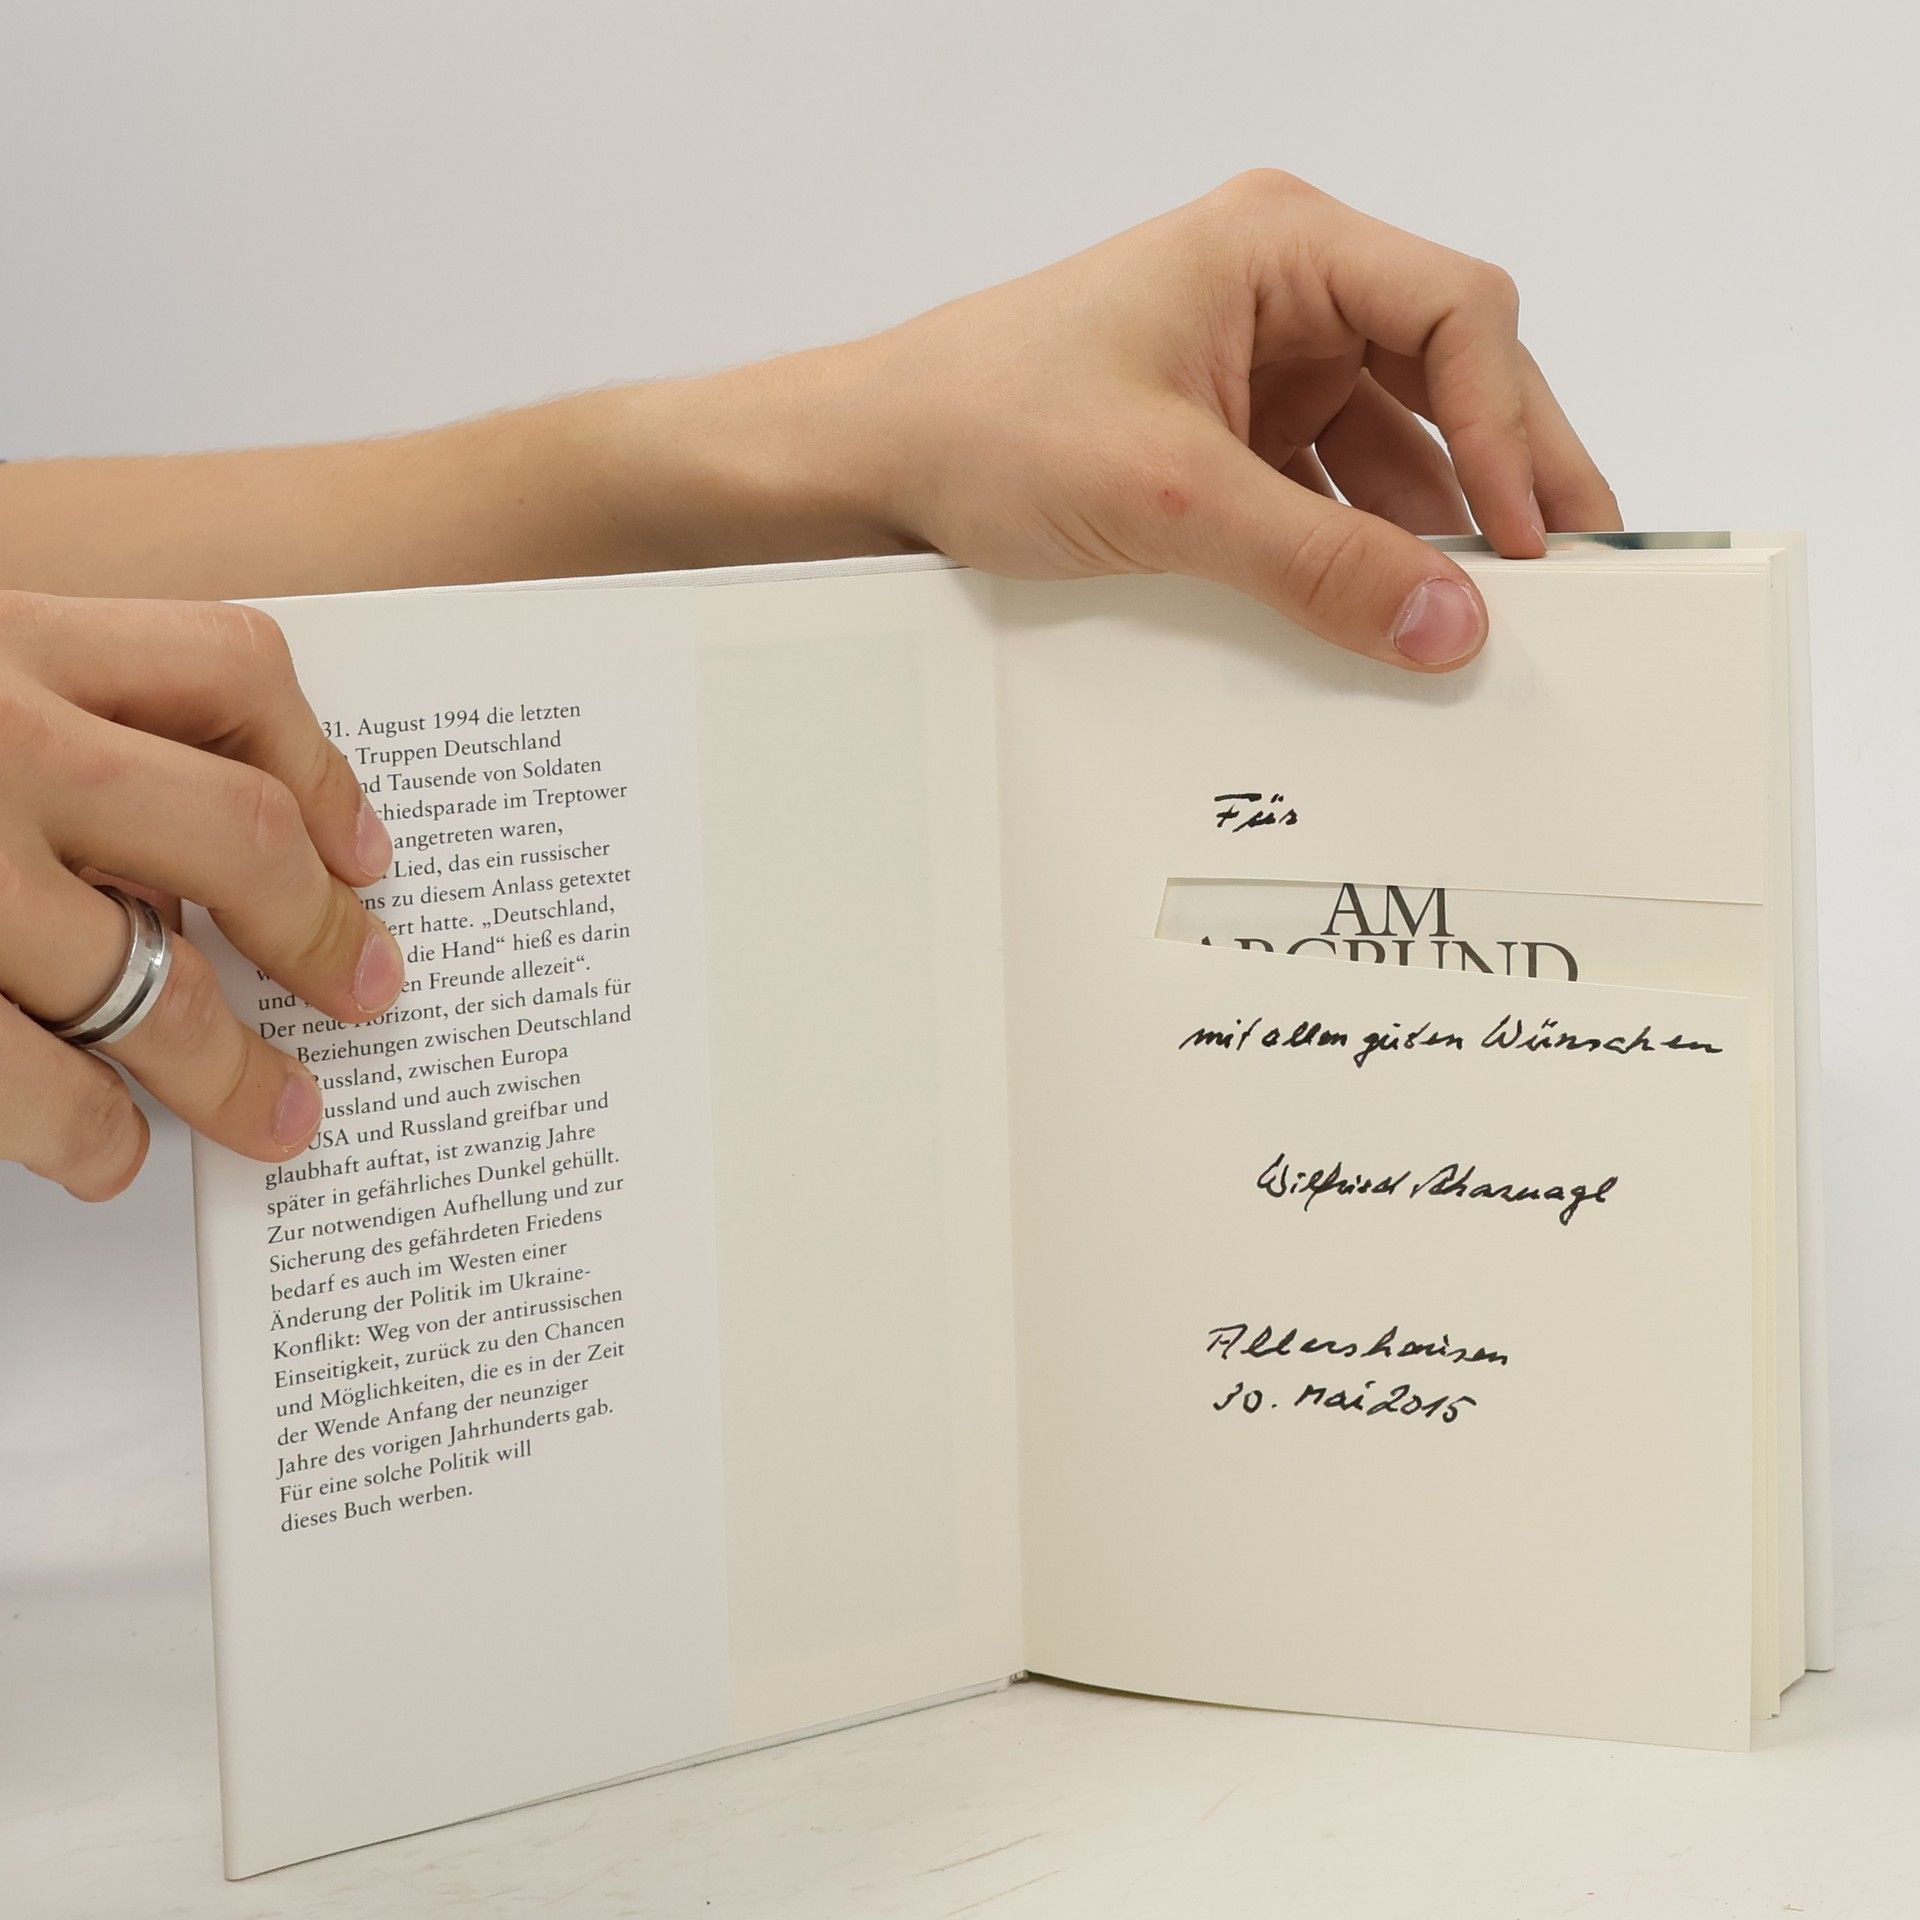 31. August 1994 die letzten
Truppen Deutschland
Tausende von Soldaten
im Treptower
angetreten waren,
Lied, das ein russischer
zu diesem Anlass getextet
hatte. „Deutschland,
die Hand“ hieß es darin
Freunde allezeit“.
und
Der neue Horizont, der sich damals für
Beziehungen zwischen Deutschland
Russland, zwischen Europa
Russland und auch zwischen
USA und Russland greifbar und
glaubhaft auftat, ist zwanzig Jahre
später in gefährliches Dunkel gehüllt.
Zur notwendigen Aufhellung und zur
Sicherung des gefährdeten Friedens
bedarf es auch im Westen einer
Änderung der Politik im Ukraine-
Konflikt: Weg von der antirussischen
Einseitigkeit, zurück zu den Chancen
und Möglichkeiten, die es in der Zeit
der Wende Anfang der neunziger
Jahre des vorigen Jahrhunderts gab.
Für eine solche Politik will
dieses Buch werben.
Für
AM
ABGRUND
mit allen guten Wünschen
Wilfried Scharnagl
Allershausen
30. Mai 2015